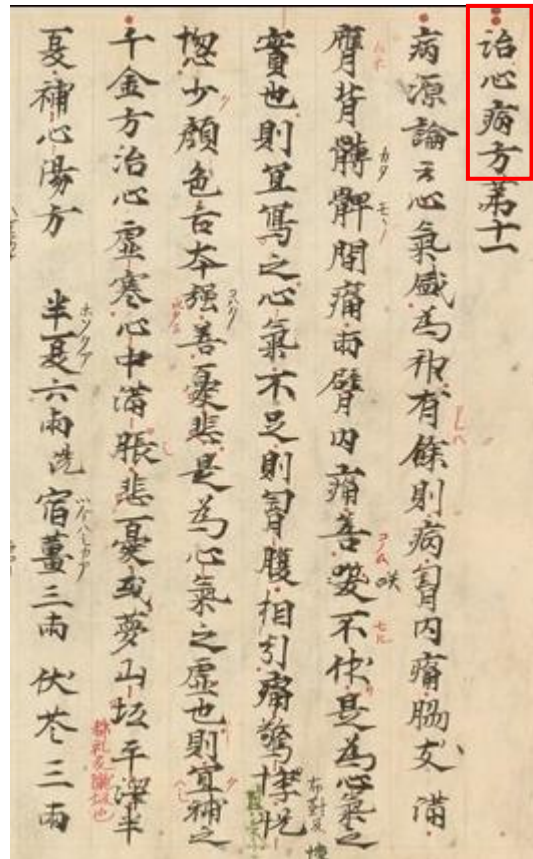 治心病方第十一
病源論云心氣盛為神有餘則病胸内痛脇支滿
膺背髆胛間痛両臂内痛喜咲不休是為心氣之
實也則宜寫之心氣不足則胸腹相引痛驚悸恍
惚少顔色舌本強善憂悲是為心氣之虛也則宜補之
千金方治心虛寒心中滿脹悲憂或夢山丘平澤半
夏補心湯方 半夏六両洗 宿薑三両 伏苓三両